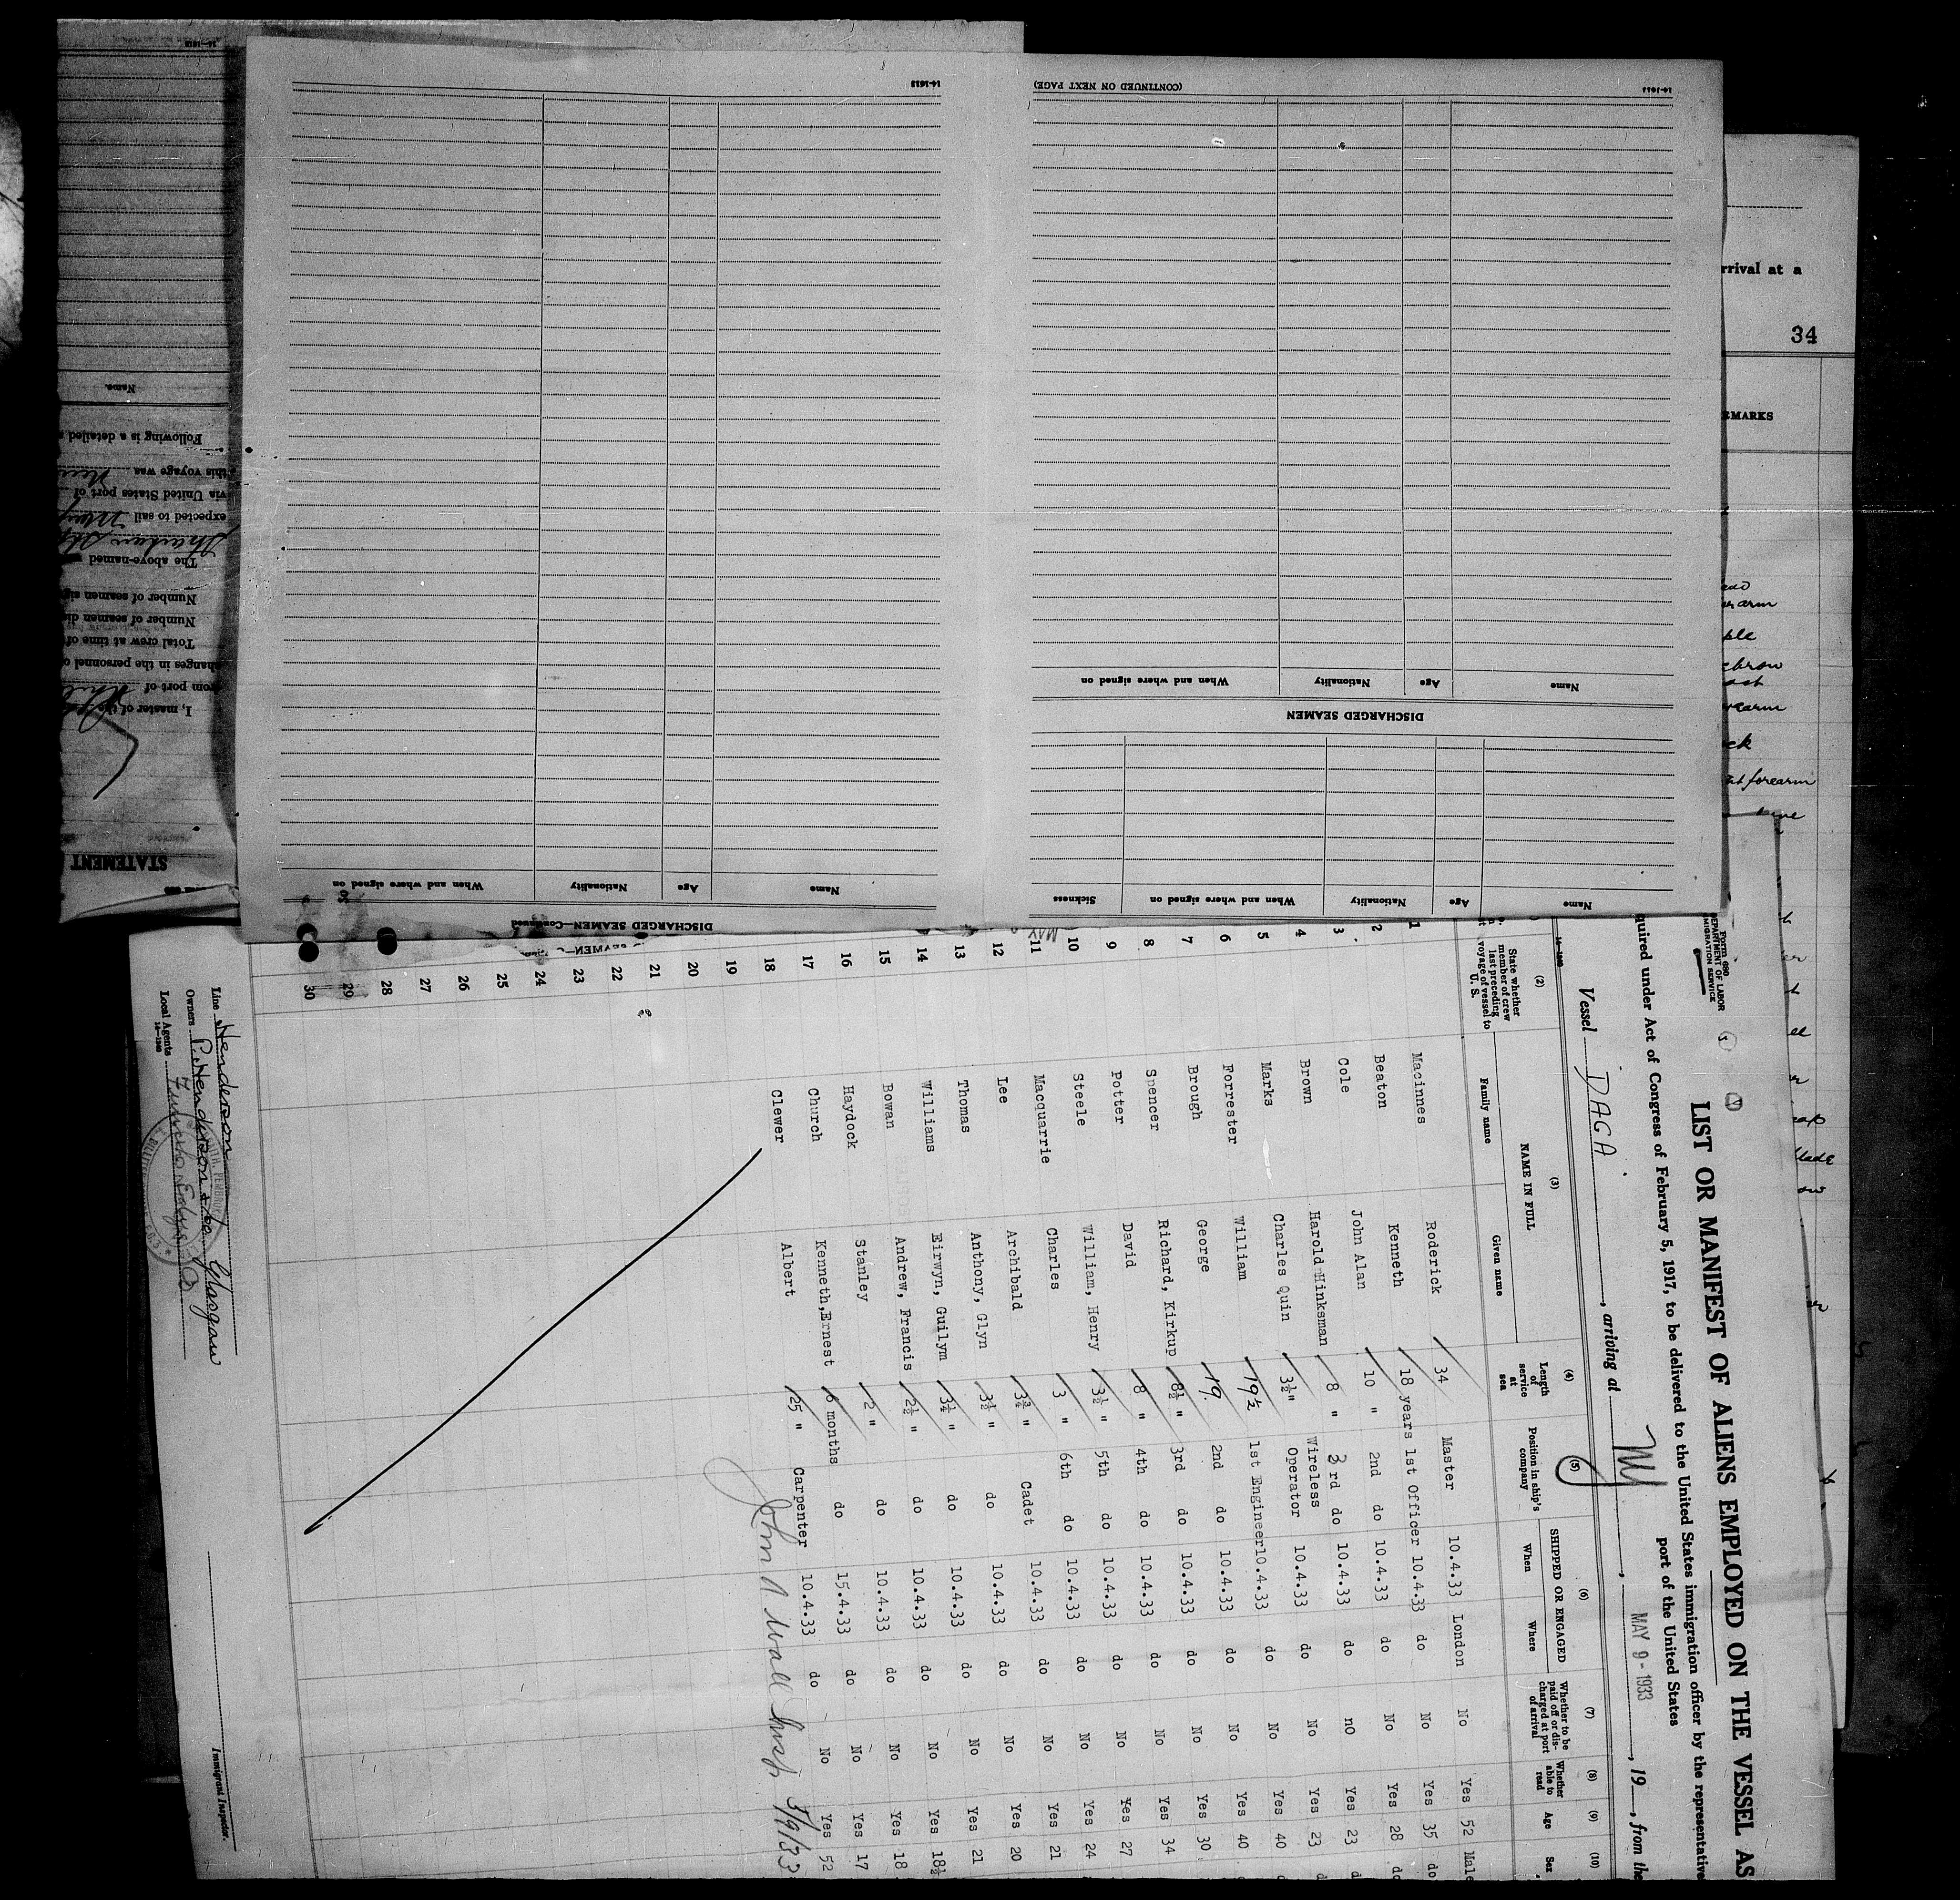 34
rrival at a
EMARKS
ple
ebrow
forearm
Form 680
DEPARTMENT OF LABOR
IMMIGRATION SERVICE
LIST OR MANIFEST OF ALIENS EMPLOYED ON THE VESSEL AS
quired under Act of Congress of February 5, 1917, to be delivered to the United States immigration officer by the representative
port of the United States
Vessel DAGA, arriving at , MAY 9 - 1933, 19 , from the
(2) (3) (4) (5) (6) (7) (8) (9) (10)
State whether member of crew last preceding voyage of vessel to U. S.
NAME IN FULL
Family name Given name
Length of service at sea
Position in ship's company
SHIPPED OR ENGAGED
When Where
Whether to be paid off or discharged at port of arrival
Whether able to read
Age
Sex
1 Macinnes Roderick 34 Master 10.4.33 London No Yes 52 Male
2 Beaton Kenneth 18 years 1st Officer 10.4.33 do No Yes 35 do
3 Cole John Alan 10 " 2nd do 10.4.33 do No Yes 28 do
4 Brown Harold Hinksman 8 " 3rd do 10.4.33 do nO Yes 23 d
5 Marks Charles Quin 3½" Wireless Operator 10.4.33 do No Yes 23 d
6 Forrester William 19½ 1st Engineer 10.4.33 do No Yes 40 d
7 Brough George 19 2nd do 10.4.33 do No Yes 40
8 Spencer Richard, Kirkup 8½ " 3rd do 10.4.33 do No Yes 30
9 Potter David 8 " 4th do 10.4.33 do No Yes 34
10 Steele William, Henry 3½ " 5th do 10.4.33 do No Yes 27
11 Macquarrie Charles 3 " 6th do 10.4.33 do No Yes 24
12 Lee Archibald 3¾ " Cadet 10.4.33 do No Yes 21
13 Thomas Anthony, Glyn 3½ " do 10.4.33 do No Yes 20
14 Williams Eirwyn, Guilym 3¼ " do 10.4.33 do No Yes 21
15 Bowan Andrew, Francis 2½ " do 10.4.33 do No Yes 18½
16 Haydock Stanley 2 " do 10.4.33 do No Yes 18
17 Church Kenneth,Ernest 6 months do 15.4.33 do No Yes 17
18 Clewer Albert 25 " Carpenter 10.4.33 do No Yes 52
19
20
21
22
23
24
25
26
27
28
29
30
John A Wall Insp 5/9/33
Line Henderson
Owners P. Henderson & Co Glasgow
Local Agents Funch Edye
Immigrant Inspector.
14-1613
DISCHARGED SEAMEN—Continued
Name Age Nationality When and where signed on
Name Age Nationality When and where signed on Sickness
DISCHARGED SEAMEN
Name Age Nationality When and where signed on
(CONTINUED ON NEXT PAGE)
STATEMENT
I, master of the
from port of
changes in the personnel
Total crew at time of
Number of seamen dis
Number of seamen sig
The above-named
expected to sail May
via United States port of
this voyage was
Following is a detailed
Name.
14-1613